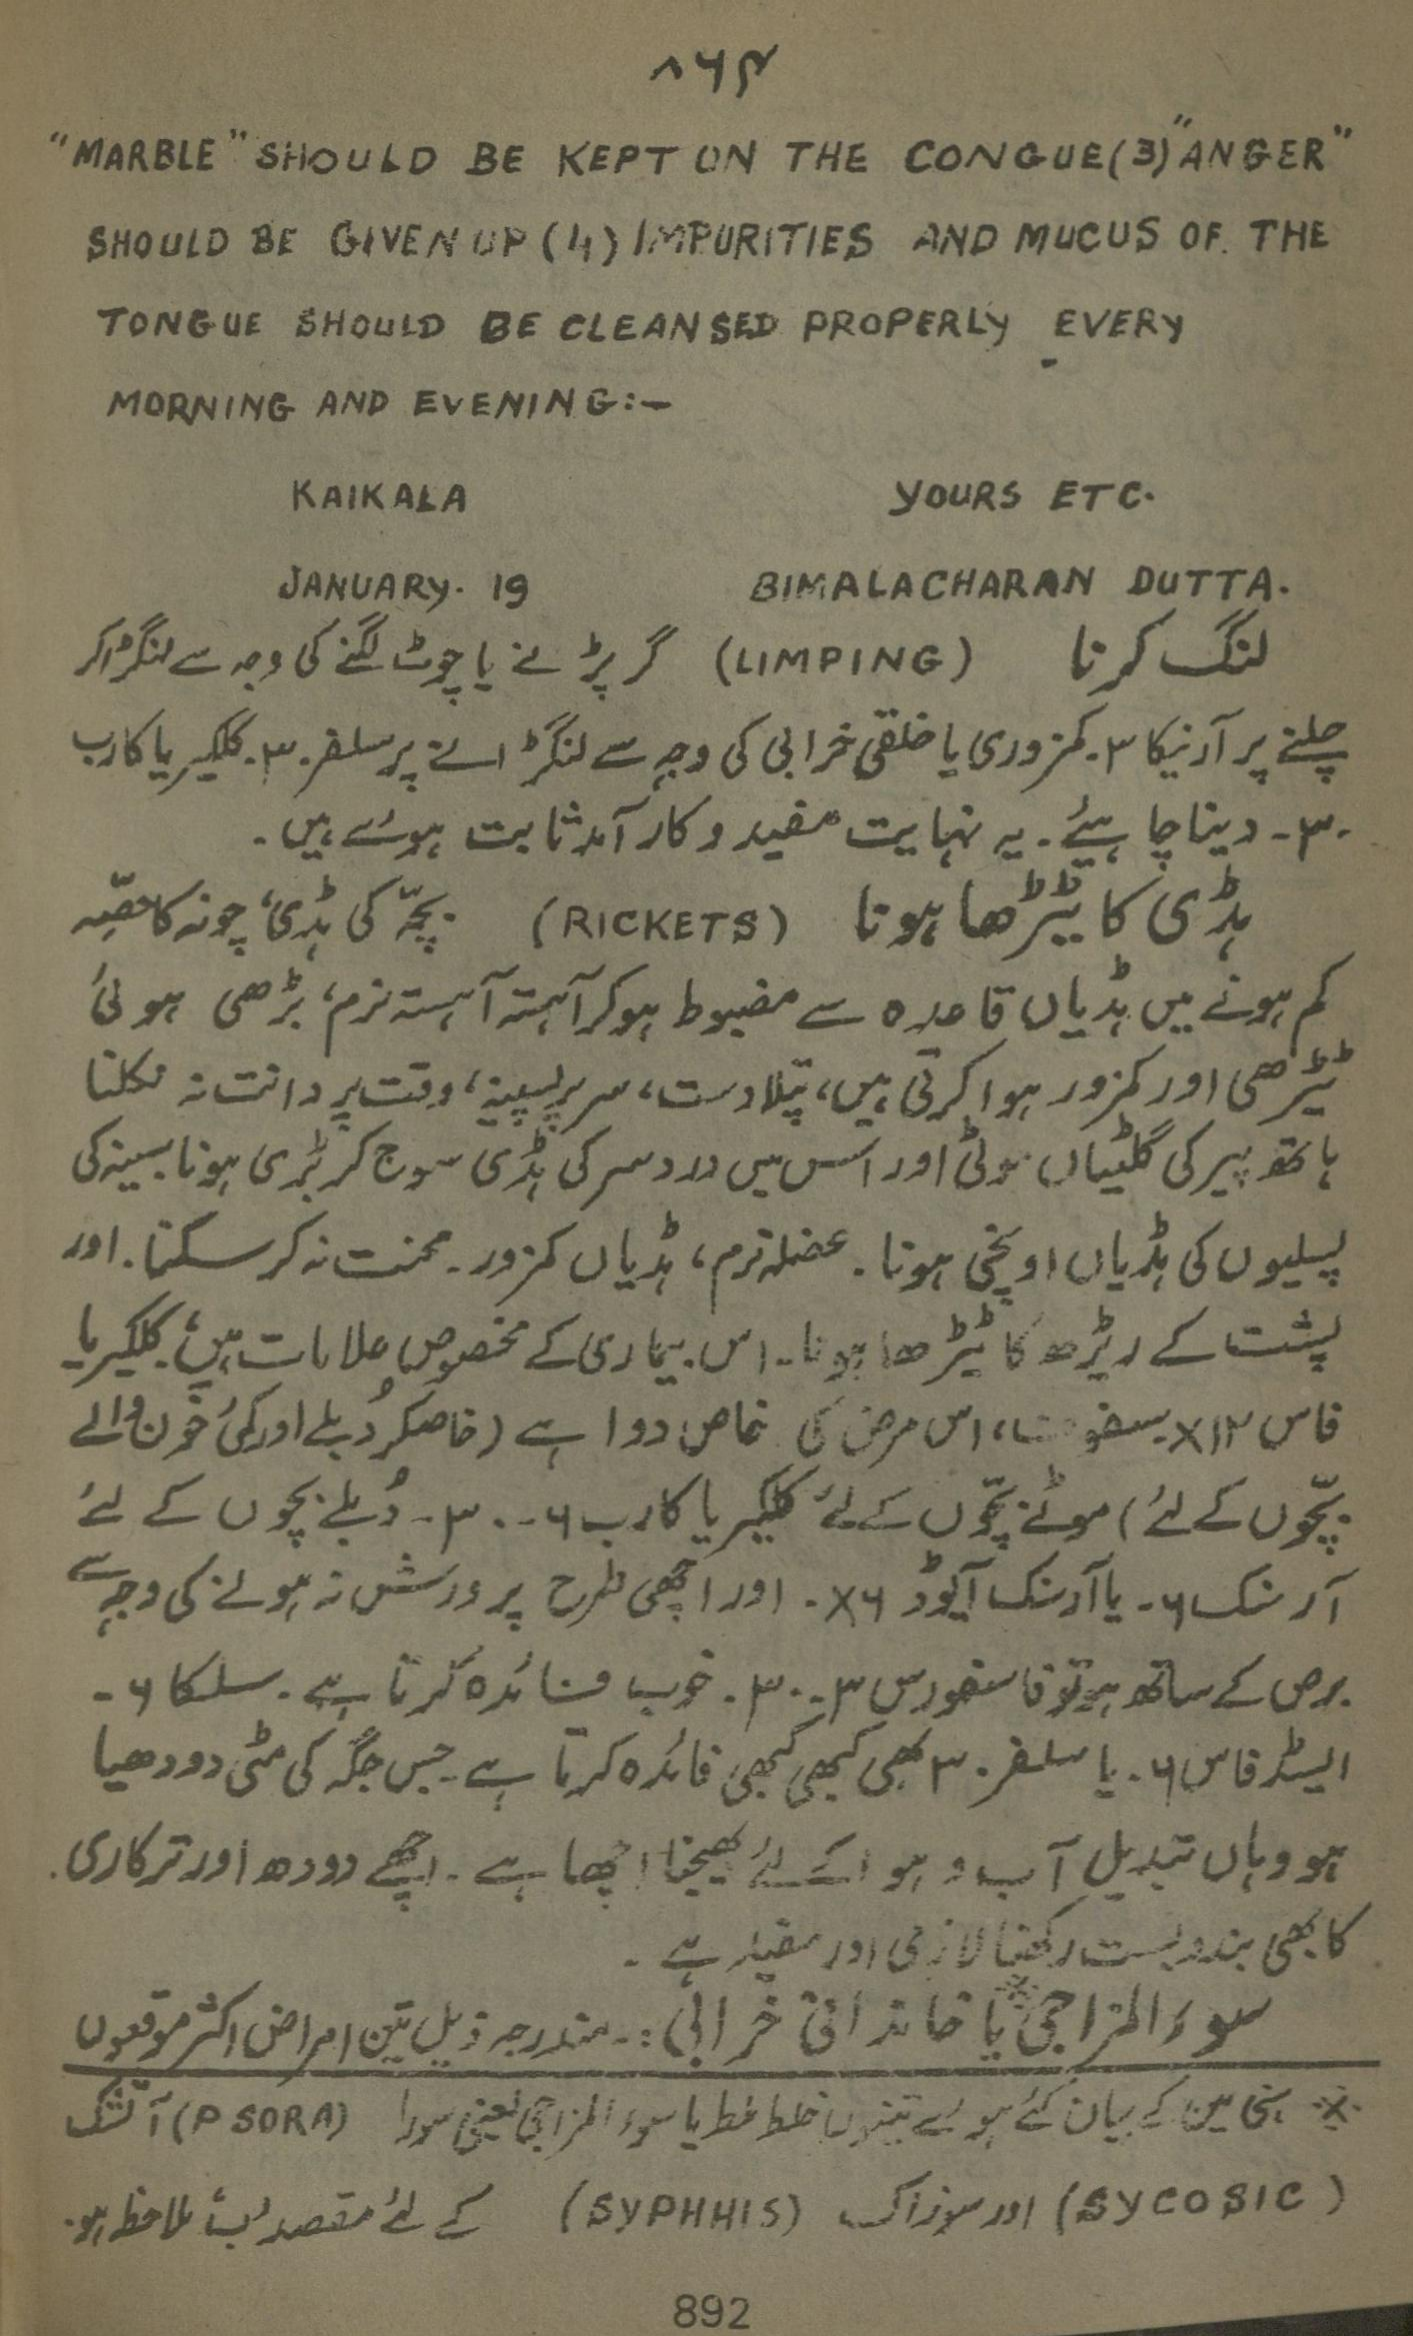 ۸۶۹
"MARBLE" SHOULD BE KEPT ON THE CONGUE(3)"ANGER"
SHOULD BE GIVEN UP (4) IMPURITIES AND MUCUS OF. THE
TONGUE SHOULD BE CLEANSED PROPERLY EVERY
MORNING AND EVENING:—
KAIKALA YOURS ETC.
JANUARY. 19 BIMALACHARAN DUTTA.
لنگ کرنا (LIMPING) گر پڑنے یا چوٹ لگنے کی وجہ سے لنگڑا کر
چلنے پر آرنیکا ۳۔ کمزوری یا خلقی خرابی کی وجہ سے لنگڑانے پر سلفر ۳۰۔ کلکیریا کارب
۳۰۔ دینا چاہیئے۔ یہ نہایت مفید و کار آمد ثابت ہوئے ہیں۔
ہڈی کا ٹیڑھا ہونا (RICKETS) بچّہ کی ہڈی، چونہ کا حصّہ
کم ہونے میں ہڈیاں قاعدہ سے مضبوط ہوکر آہستہ آہستہ نرم، بڑھی ہوئی
ٹیڑھی اور کمزور ہوا کرتی ہیں، پتلا دست، سر پر پسینہ، وقت پر دانت نہ نکلنا
ہاتھ پیر کی گلٹیاں موٹی اور اس میں درد سر کی ہڈی سوج کر بڑی ہونا سینہ کی
پسلیوں کی ہڈیاں اونچی ہونا۔ عضلہ نرم، ہڈیاں کمزور۔ محنت نہ کر سکنا۔ اور
پشت کے ریڑھ کا ٹیڑھا ہونا۔ اس بیماری کے مخصوص علامات ہیں، کلکیریا
فاس ۱۲X سفوف، اس مرض کی خاص دوا ہے (خاصکر دُبلے اور کمئ خون والے
بچّوں کے لئے) موٹے بچّوں کے لئے کلکیریا کارب ۶۔۳۰۔ دُبلے بچوں کے لئے
آرسنک ۶۔ یا آرسنک آیوڈ ۶X۔ اور اچھی طرح پرورش نہ ہونے کی وجہ سے
برص کے ساتھ ہو تو فاسفورس ۳۔۳۰۔ خوب فائدہ کرتا ہے۔ سلکا ۶۔
ایسڈ فاس ۶۔ یا سلفر ۳۰ بھی کبھی کبھی فائدہ کرتا ہے۔ جس جگہ کی مٹی دودھیا
ہو وہاں تبدیل آب و ہوا کے لئے بھیجنا اچھا ہے۔ اچھے دودھ اور ترکاری
کا بھی بندوبست رکھنا لازمی اور مفید ہے۔
سوء المزاجی※ یا خاندانی خرابی :۔ مندرجہ ذیل تین امراض اکثر موقعوں
※ ہنی مین کے بیان کئے ہوئے تینوں خلط یا سوء المزاجی یعنی سورا (PSORA) آتشک
(SYCOSIC) اور سوزاک (SYPHHIS) کے لئے مقصد ملاحظہ ہو۔
892